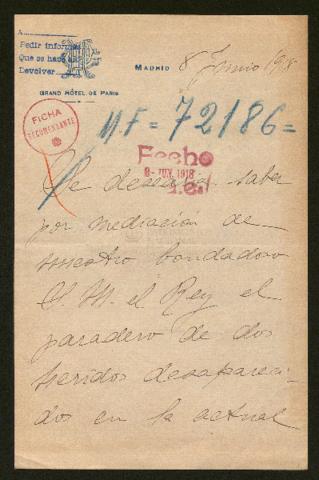 A
Pedir informes
Que se haga
Devolver
MADRID 8 Junio 1918
GRAND HÔTEL DE PARIS
FICHA
RECOMENDANTE
M.F = 72186 =
Fecho
8 - JUN. 1918
Se desearía saber
por mediación de
nuestro bondadoso
S. M. el Rey el
paradero de dos
heridos desapareci-
dos en la actual